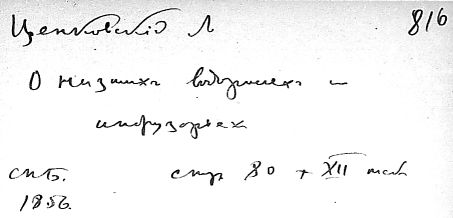 Ценковскій Л 816
О низшихъ водоросляхъ и
инфузоріяхъ
СПБ. стр 80 + XII табл
1856.